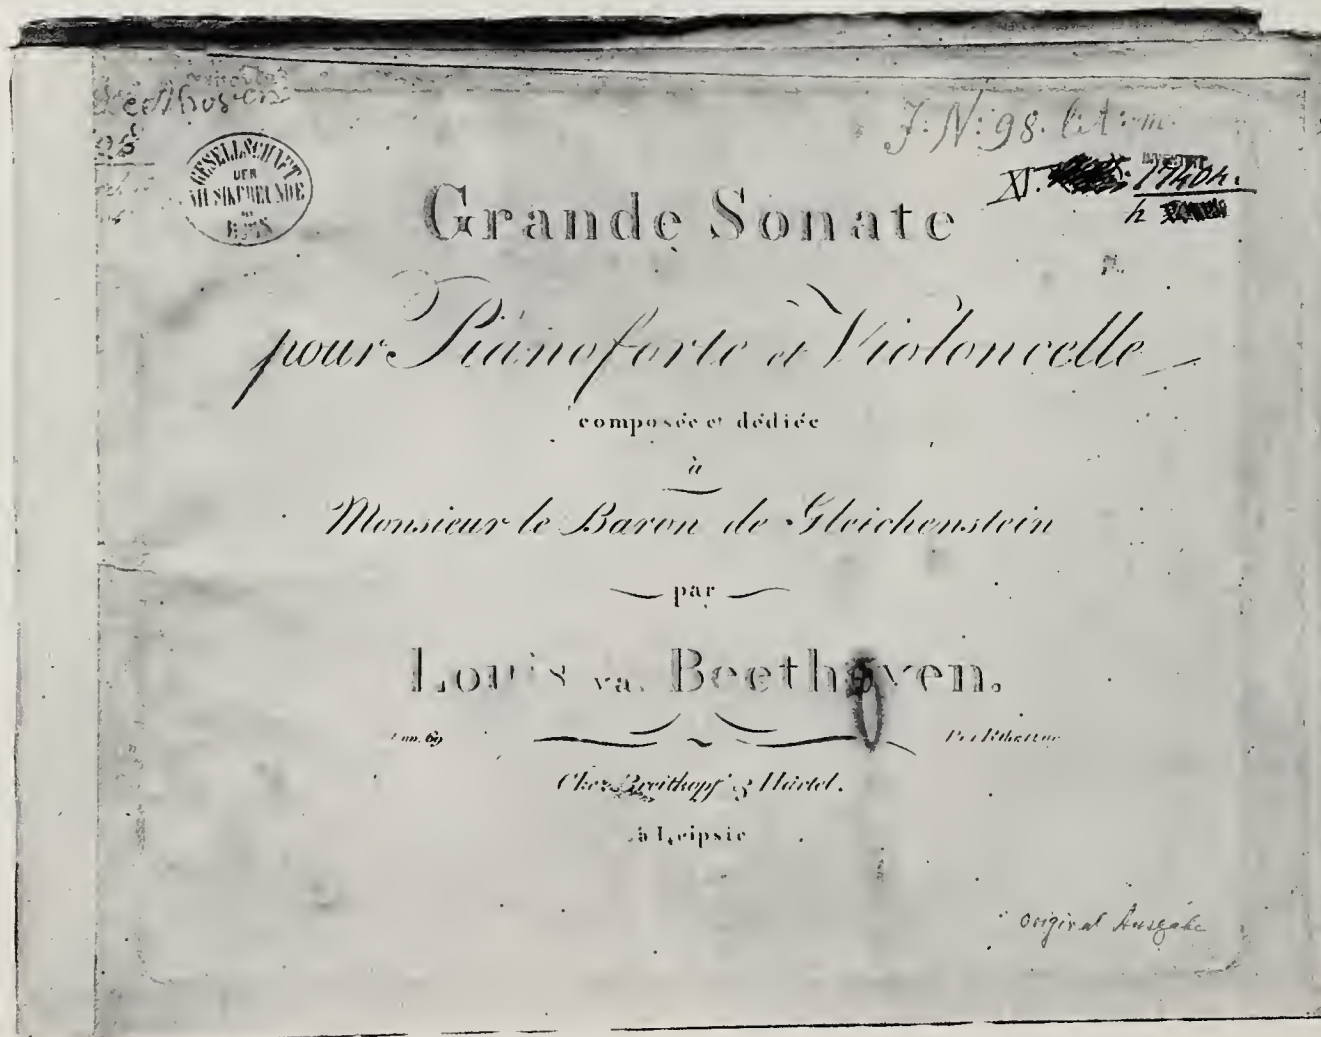 Beethoven
J: N: 98. lit: m.
GESELLSCHAFT
DER
MUSIKFREUNDE
IN
WIEN
XI. 17404.
h
Grande Sonate
pour Pianoforte et Violoncelle
composée et dédiée
à
Monsieur le Baron de Gleichenstein
par
Louis va. Beethoven.
69
Chez Breitkopf & Härtel.
à Leipsic
Original Ausgabe